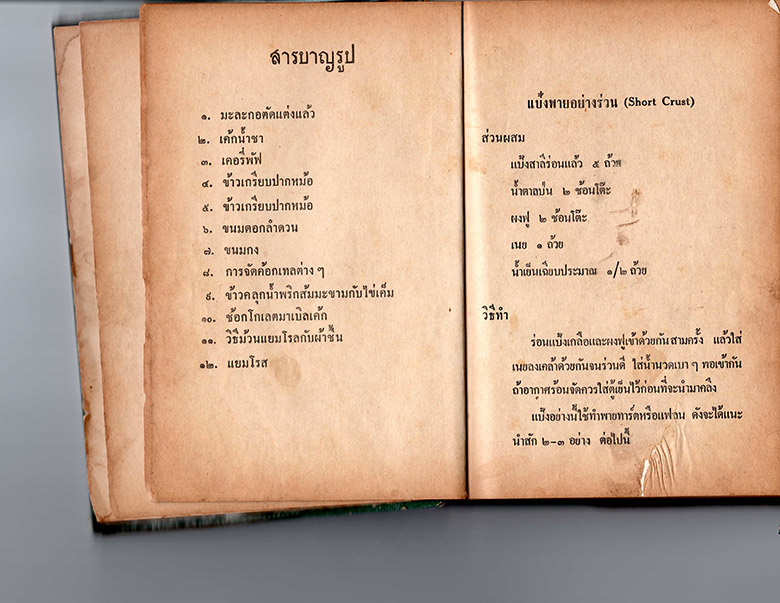 สารบาญรูป
๑. มะละกอตัดแต่งแล้ว
๒. เค้กน้ำชา
๓. เคอรี่พัฟ
๔. ข้าวเกรียบปากหม้อ
๕. ข้าวเกรียบปากหม้อ
๖. ขนมดอกลำดวน
๗. ขนมกง
๘. การจัดค้อกเทลต่าง ๆ
๙. ข้าวคลุกน้ำพริกส้มมะขามกับไข่เค็ม
๑๐. ช้อกโกเลตมาเบิลเค้ก
๑๑. วิธีม้วนแยมโรลกับผ้าชื้น
๑๒. แยมโรส
แป้งพายอย่างร่วน (Short Crust)
ส่วนผสม
แป้งสาลีร่อนแล้ว ๕ ถ้วย
น้ำตาลป่น ๒ ช้อนโต๊ะ
ผงฟู ๒ ช้อนโต๊ะ
เนย ๑ ถ้วย
น้ำเย็นเฉียบประมาณ ๑/๒ ถ้วย
วิธีทำ
ร่อนแป้งเกลือและผงฟูเข้าด้วยกันสามครั้ง แล้วใส่
เนยลงเคล้าด้วยกันจนร่วนดี ใส่น้ำนวดเบา ๆ พอเข้ากัน
ถ้าอากาศร้อนจัดควรใส่ตู้เย็นไว้ก่อนที่จะนำมาคลึง
แป้งอย่างนี้ใช้ทำพายทาร์ตหรือแฟลน ดังจะได้แนะ
นำสัก ๒-๓ อย่าง ต่อไปนี้